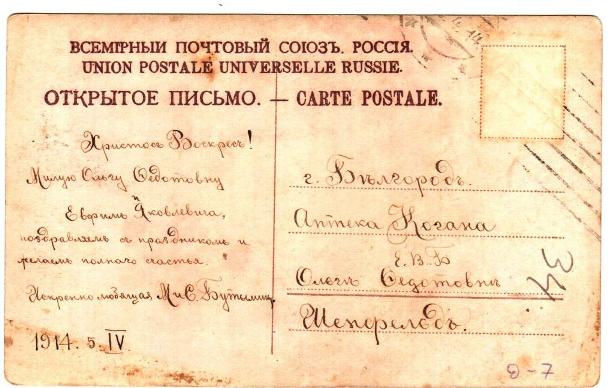 ВСЕМІРНЫЙ ПОЧТОВЫЙ СОЮЗЪ. РОССІЯ.
UNION POSTALE UNIVERSELLE RUSSIE.
ОТКРЫТОЕ ПИСЬМО. — CARTE POSTALE.
Христосъ Воскресъ!
Милую Ольгу Ѳедотовну
и
Евфимъ Яковлевича,
поздравляемъ съ праздникомъ и
желаемъ полнаго счастья.
Искренно любящая М и С.
1914. 5. IV
г. Бѣлгородъ.
Аптека Когана
Е. В. Б
Ольгѣ Ѳедотовнѣ
Шенфельдъ.
34
9-7